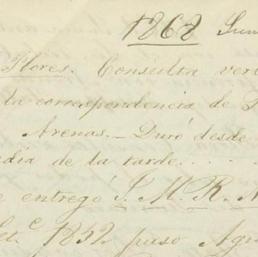 1868 Jun
Flores. Consulta ver
la correspondencia de
Arenas.— Duró desde
dia de la tarde....
entregó J. M. R.
1832 puso Agu